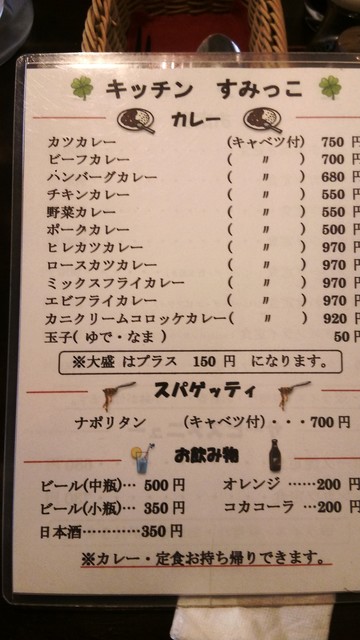 キッチン すみっこ
カレー
カツカレー (キャベツ付) 750 円
ビーフカレー ( 〃 ) 700 円
ハンバーグカレー ( 〃 ) 680 円
チキンカレー ( 〃 ) 550 円
野菜カレー ( 〃 ) 550 円
ポークカレー ( 〃 ) 500 円
ヒレカツカレー ( 〃 ) 970 円
ロースカツカレー ( 〃 ) 970 円
ミックスフライカレー ( 〃 ) 970 円
エビフライカレー ( 〃 ) 970 円
カニクリームコロッケカレー( 〃 ) 920 円
玉子( ゆで・なま ) 50 円
※大盛 はプラス 150 円 になります。
スパゲッティ
ナポリタン (キャベツ付)・・・700 円
お飲み物
ビール(中瓶)… 500 円 オレンジ ……200 円
ビール(小瓶)… 350 円 コカコーラ …200 円
日本酒…………350 円
※カレー・定食お持ち帰りできます。